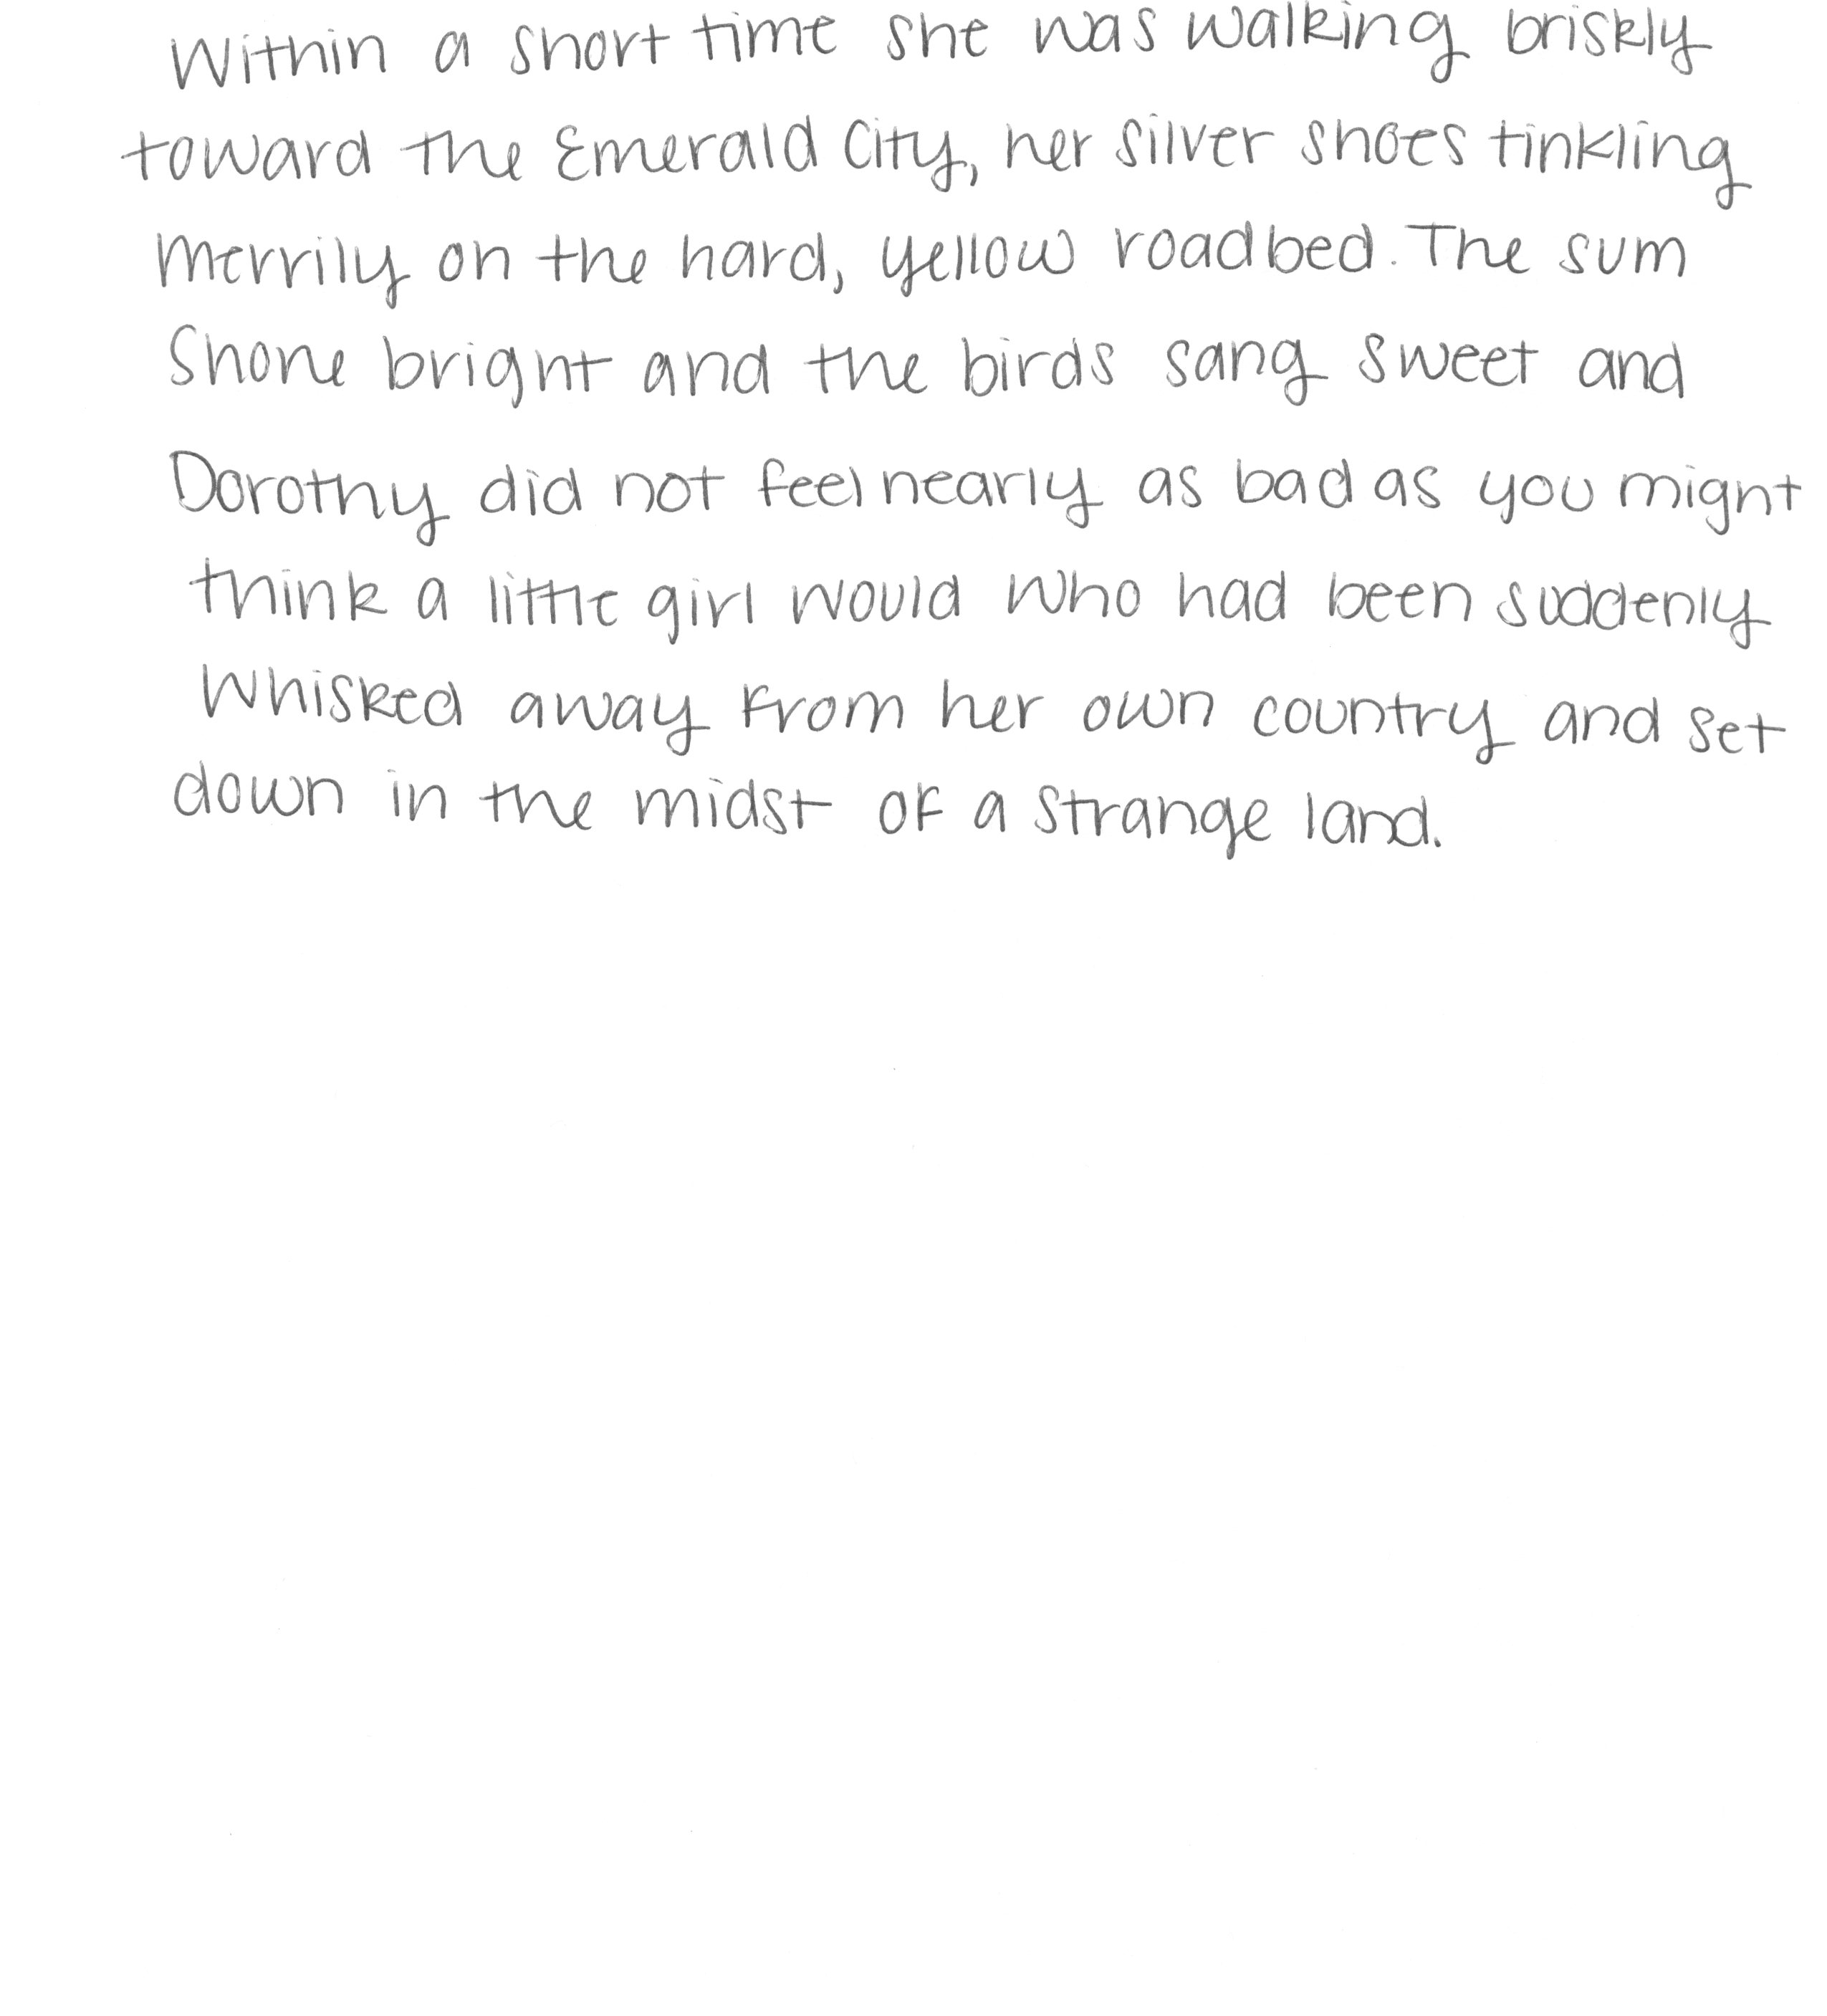 Within a short time she was walking briskly
toward the Emerald City, her silver shoes tinkling
merrily on the hard, yellow roadbed. The sum
shone bright and the birds sang sweet and
Dorothy did not feel nearly as bad as you might
think a little girl would who had been suddenly
whisked away from her own country and set
down in the midst of a strange land.